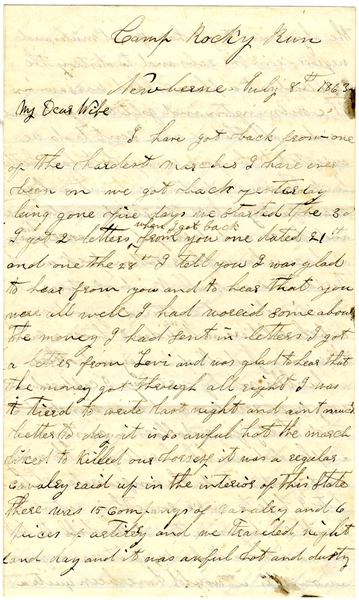 Camp Rocky Run
Newberne July 8th 1863
My Dear Wife
I have got back from one
of the hardest marches I have ever
been on we got back yesterday
being gone five days we started the 3d
when I got back
I got 2 letters from you one dated 21st
and one the 28th I tell you I was glad
to hear from you and to hear that you
were all well I had worried some about
the money I had sent in letters I got
a letter from Levi and was glad to hear that
the money got through all right I was
tired to write last night and aint much
better to day it is so awful hot the march
liked to killed our horses it was a regular
cavalry raid up in the interior of this State
There was 15 companys of cavalry and 6
pieces of artilery and we traviled night
and day and it was awful hot and dusty